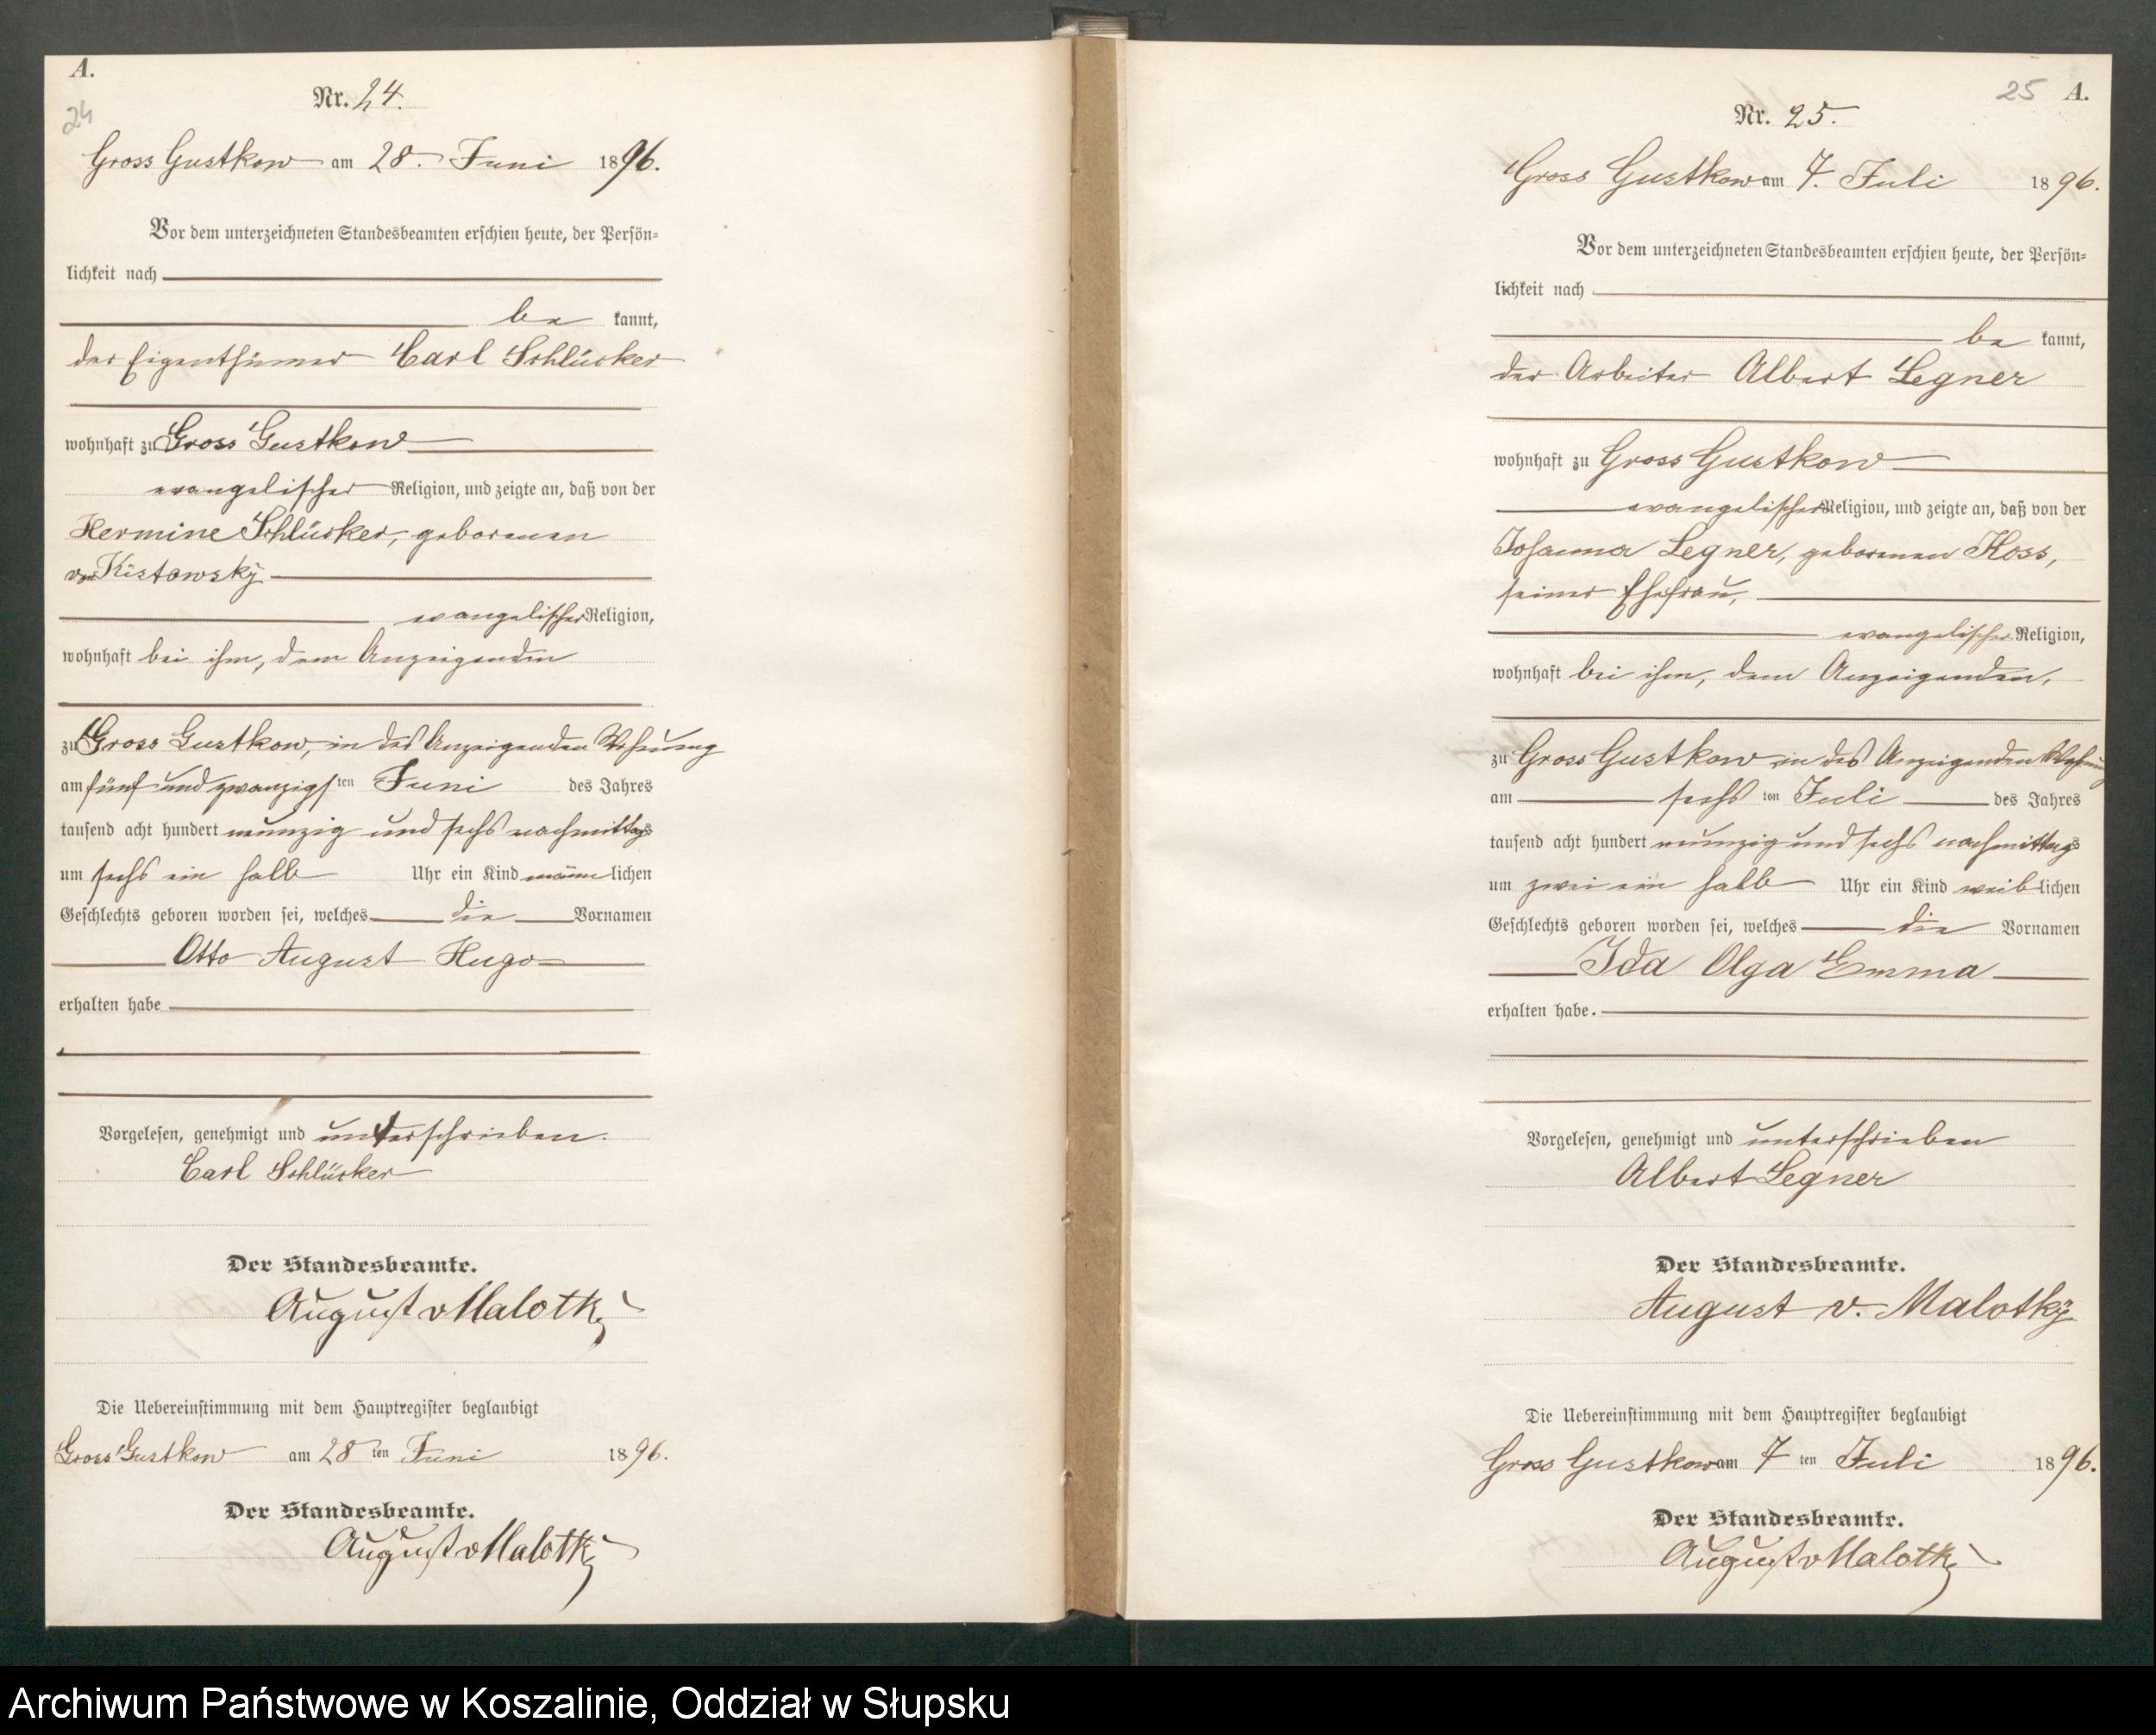 A.
24
Nr. 24.
Gross Gustkow am 28. Juni 1896.
Vor dem unterzeichneten Standesbeamten erschien heute, der Persön-
lichkeit nach
be kannt,
der Eigenthümer Carl Schlücker
wohnhaft zu Gross Gustkow
evangelischer Religion, und zeigte an, daß von der
Hermine Schlücker, geborenen
von Kistowsky
evangelischer Religion,
wohnhaft bei ihm, dem Anzeigenden
zu Gross Gustkow, in des Anzeigenden Wohnung
am fünf und zwanzigsten Juni des Jahres
tausend acht hundert neunzig und sechs nachmittags
um sechs ein halb Uhr ein Kind männlichen
Geschlechts geboren worden sei, welches die Vornamen
Otto August Hugo
erhalten habe
Vorgelesen, genehmigt und unterschrieben.
Carl Schlücker
Der Standesbeamte.
August v Malotky
Die Uebereinstimmung mit dem Hauptregister beglaubigt
Gross Gustkow am 28 ten Juni 1896.
Der Standesbeamte.
August v Malotky
25 A.
Nr. 25.
Gross Gustkow am 7. Juli 1896.
Vor dem unterzeichneten Standesbeamten erschien heute, der Persön-
lichkeit nach
be kannt,
der Arbeiter Albert Legner
wohnhaft zu Gross Gustkow
evangelischer Religion, und zeigte an, daß von der
Johanna Legner, geborenen Koss,
seiner Ehefrau,
evangelischer Religion,
wohnhaft bei ihm, dem Anzeigenden,
zu Gross Gustkow in des Anzeigenden Wohnung
am sechs ten Juli des Jahres
tausend acht hundert neunzig und sechs nachmittags
um zwei ein halb Uhr ein Kind weiblichen
Geschlechts geboren worden sei, welches die Vornamen
Ida Olga Emma
erhalten habe.
Vorgelesen, genehmigt und unterschrieben
Albert Legner
Der Standesbeamte.
August v. Malotky
Die Uebereinstimmung mit dem Hauptregister beglaubigt
Gross Gustkow am 7 ten Juli 1896.
Der Standesbeamte.
August v Malotky
Archiwum Państwowe w Koszalinie, Oddział w Słupsku